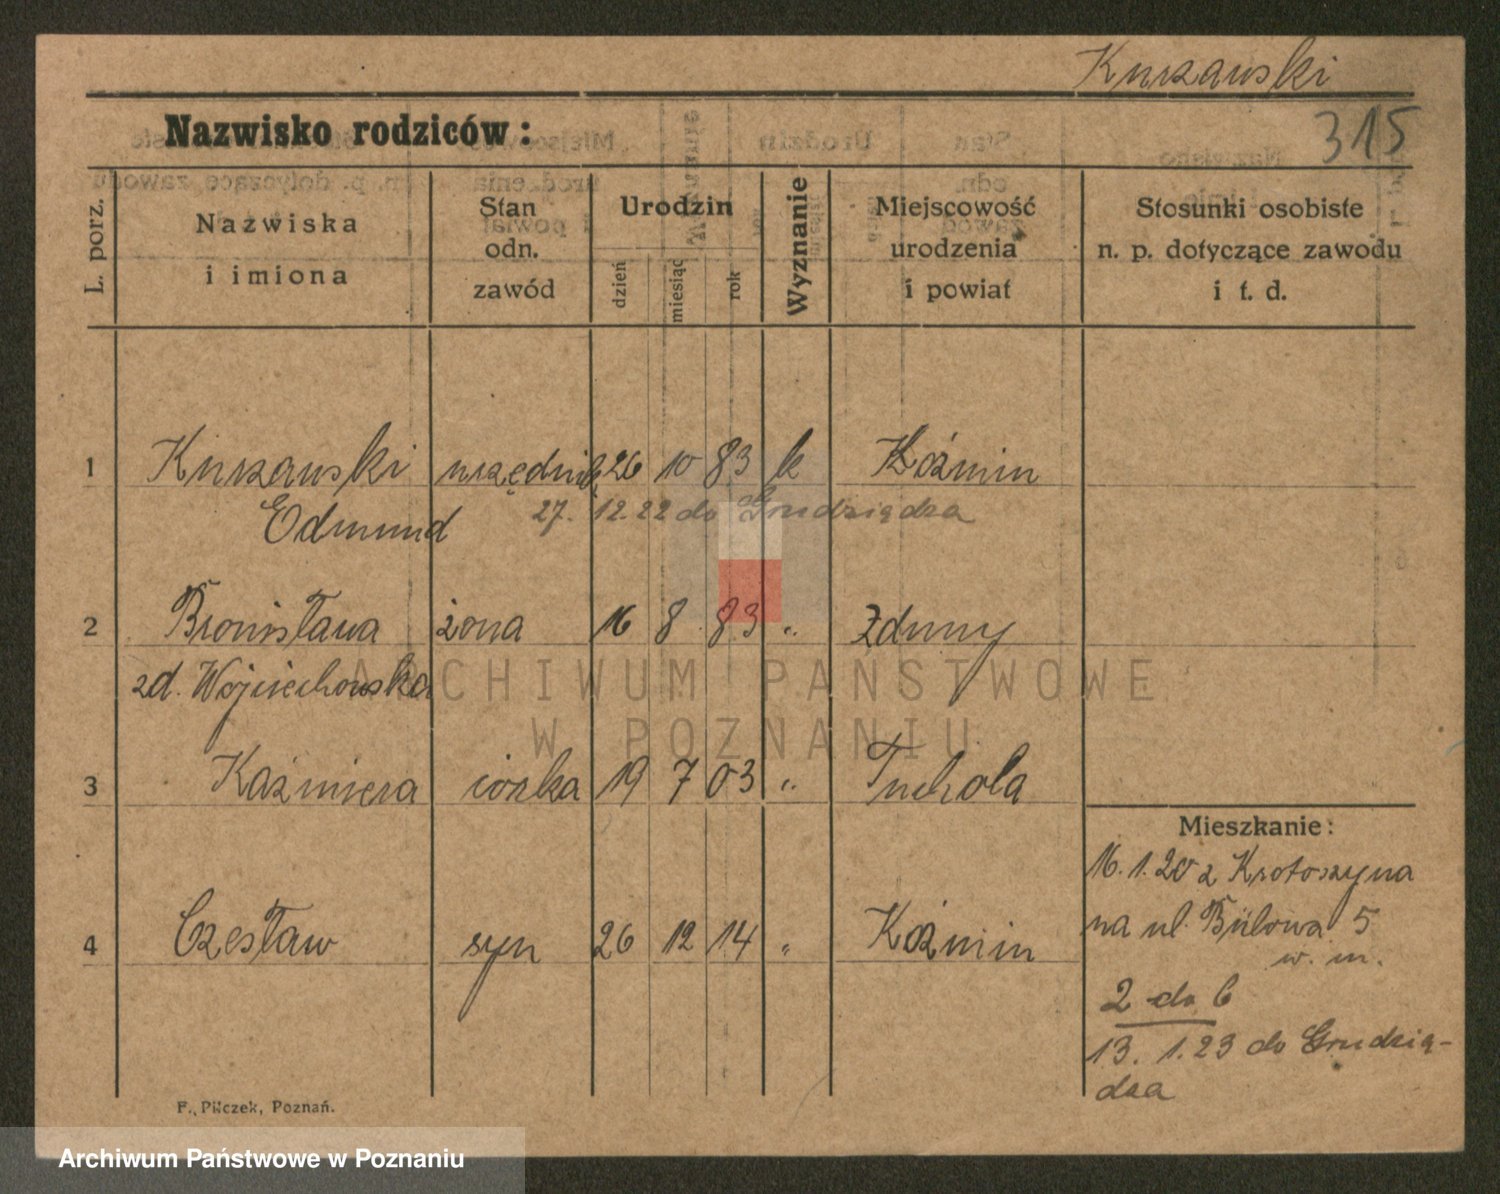 Kurzawski
315
Nazwisko rodziców:
L. porz.
Nazwiska
i imiona
Stan
odn.
zawód
Urodzin
dzień
miesiąc
rok
Wyznanie
Miejscowość
urodzenia
i powiat
Stosunki osobiste
n. p. dotyczące zawodu
i t. d.
1 Kurzawski urzędnik 26 10 83 k Koźmin
Edmund 27. 12. 22 do Grudziądza
2 Bronisława żona 16 8 83 " Zduny
zd. Wojciechowska
3 Kaźmiera córka 19 7 03 " Tuchola
4 Czesław syn 26 12 14 " Koźmin
Mieszkanie:
16. 1. 20 z Krotoszyna
na ul. Bülowa 5
w. m.
2 do 6
13. 1. 23 do Grudzią-
dza
F. Pilczek, Poznań.
ARCHIWUM PAŃSTWOWE
W POZNANIU
Archiwum Państwowe w Poznaniu